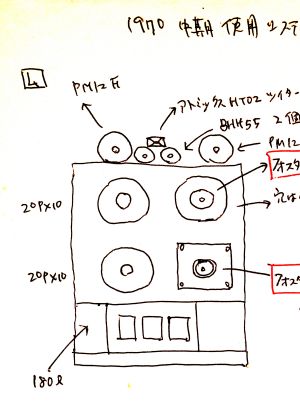 1970 中期 使用 システ
L
PM12F
アトミックスHT02 ツイター
BHH55 2個
PM12
フォスタ
20P×10
穴は
20P×10
フォスタ
180ℓ